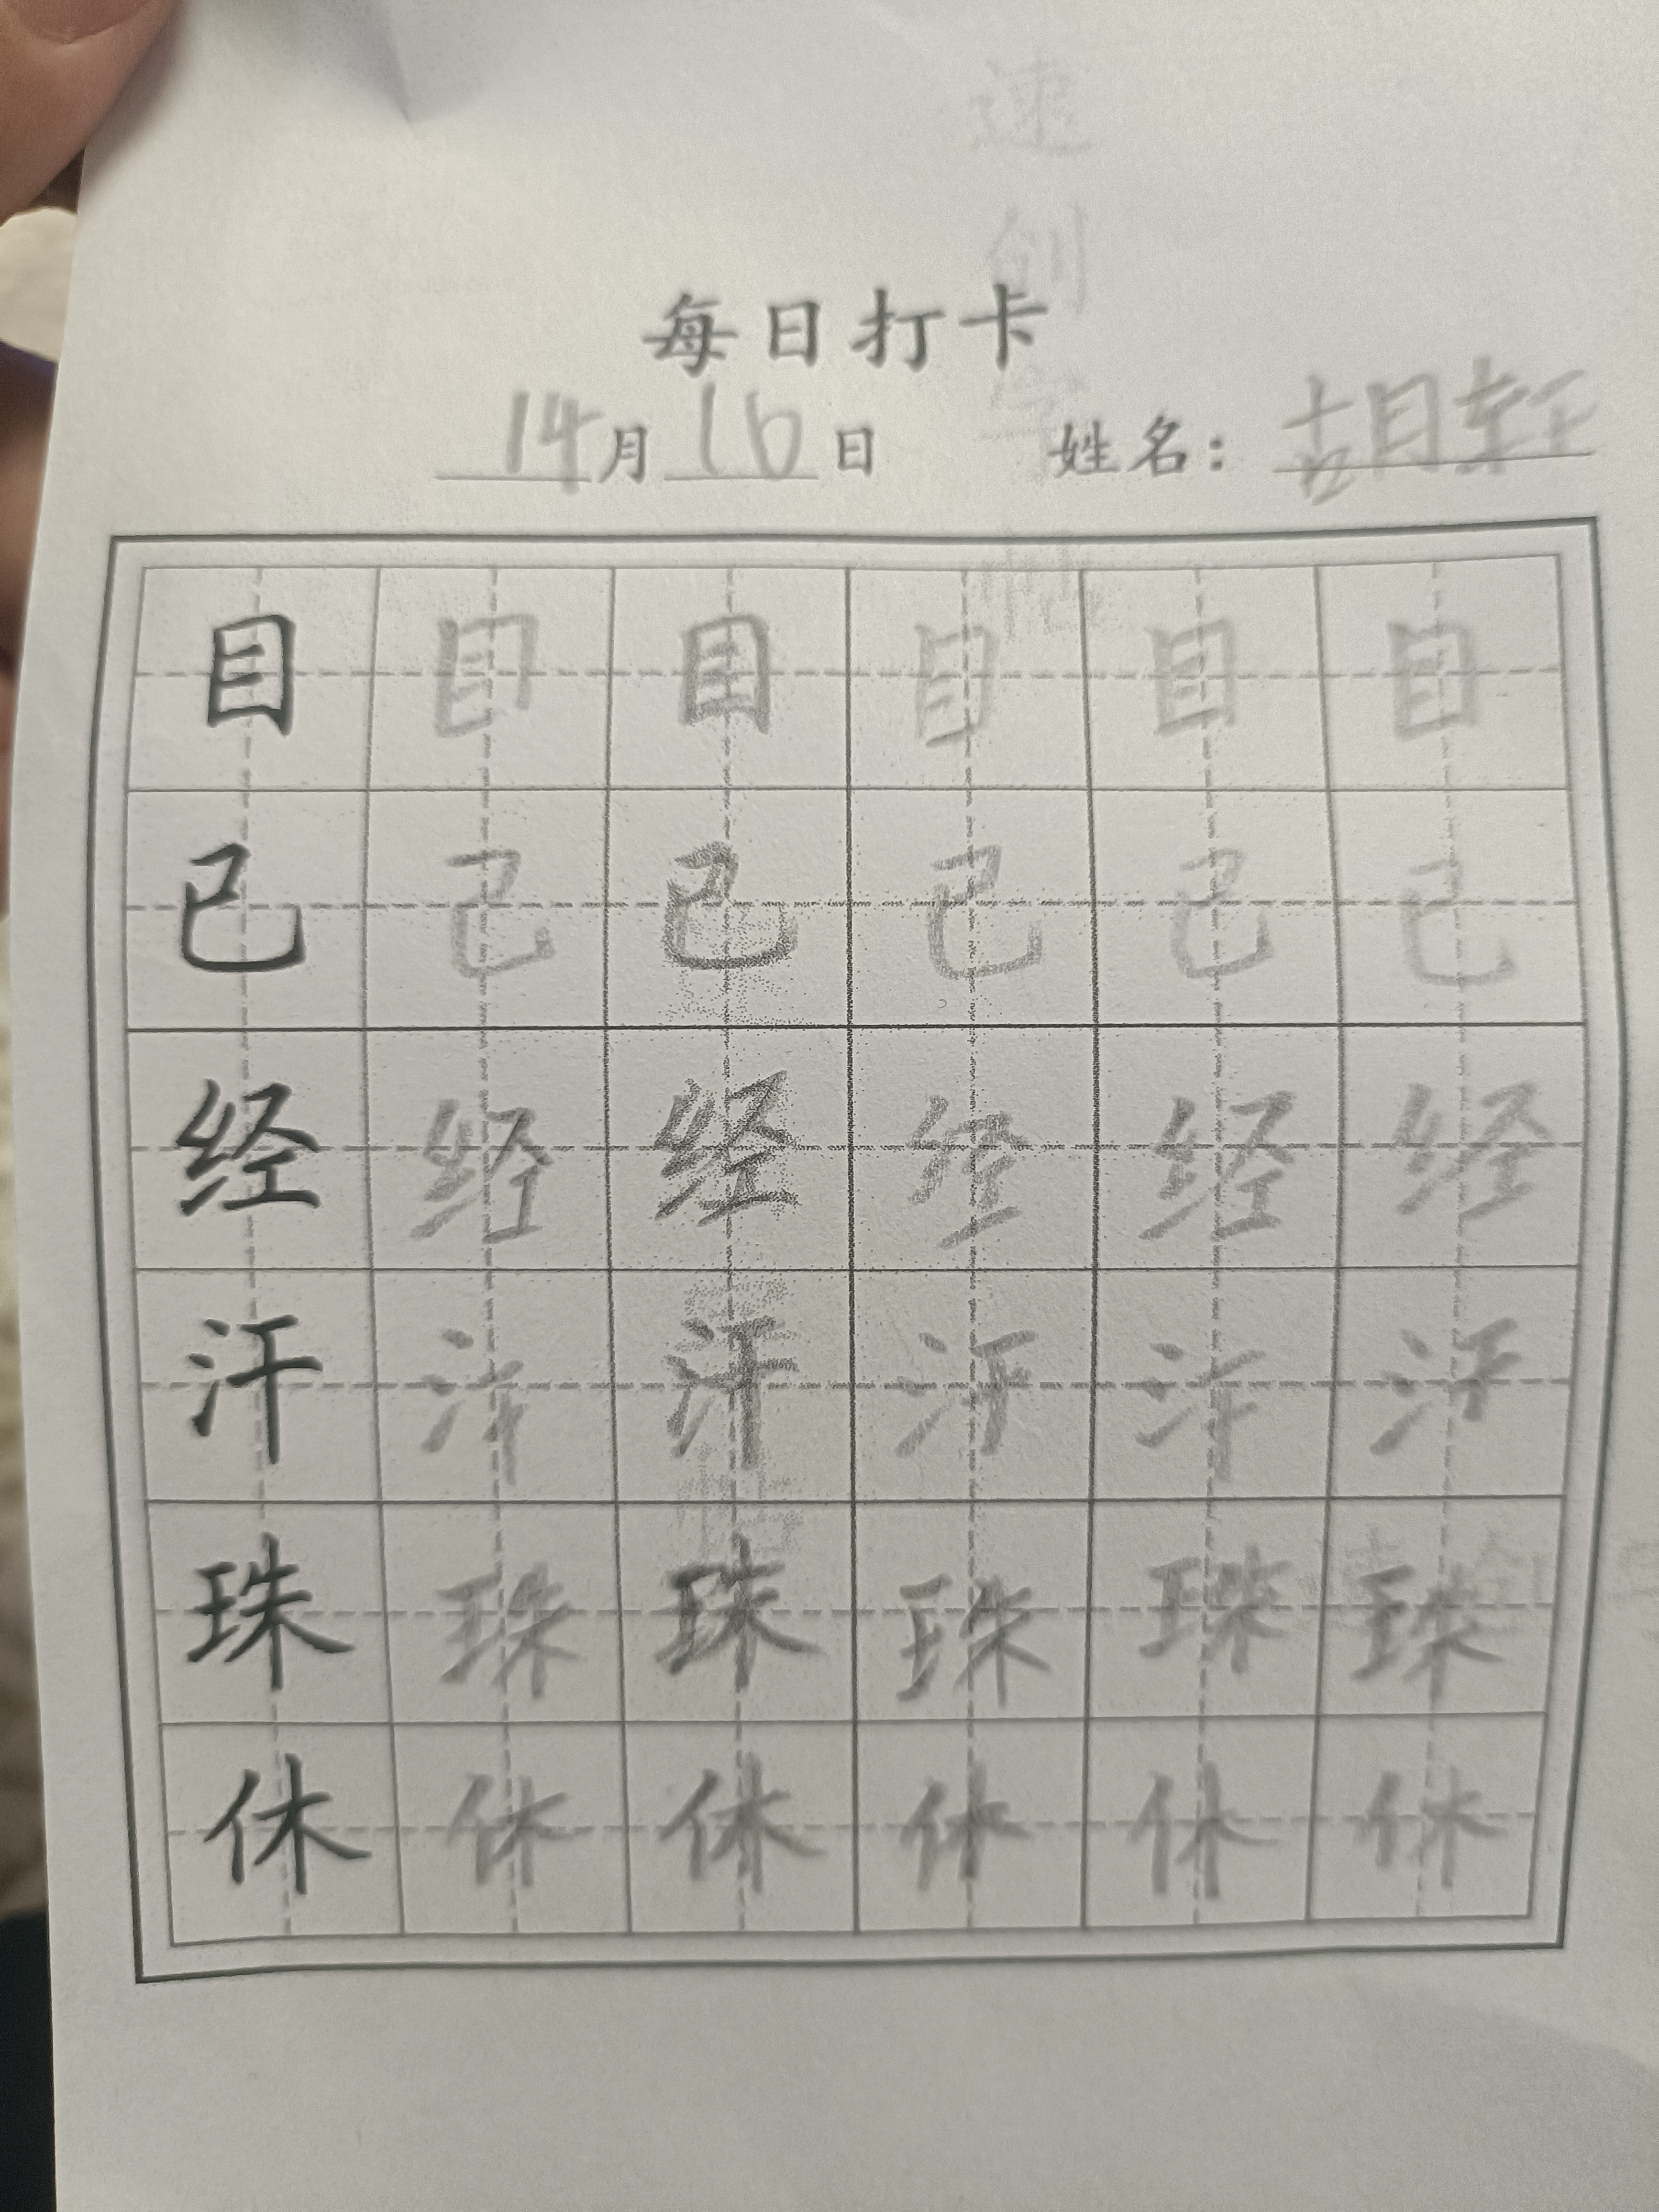 每日打卡
14月16日 姓名：胡轩
目 目 目 目 目 目
已 已 已 已 已 已
经 经 经 经 经 经
汗 汗 汗 汗 汗 汗
珠 珠 珠 珠 珠 珠
休 休 休 休 休 休